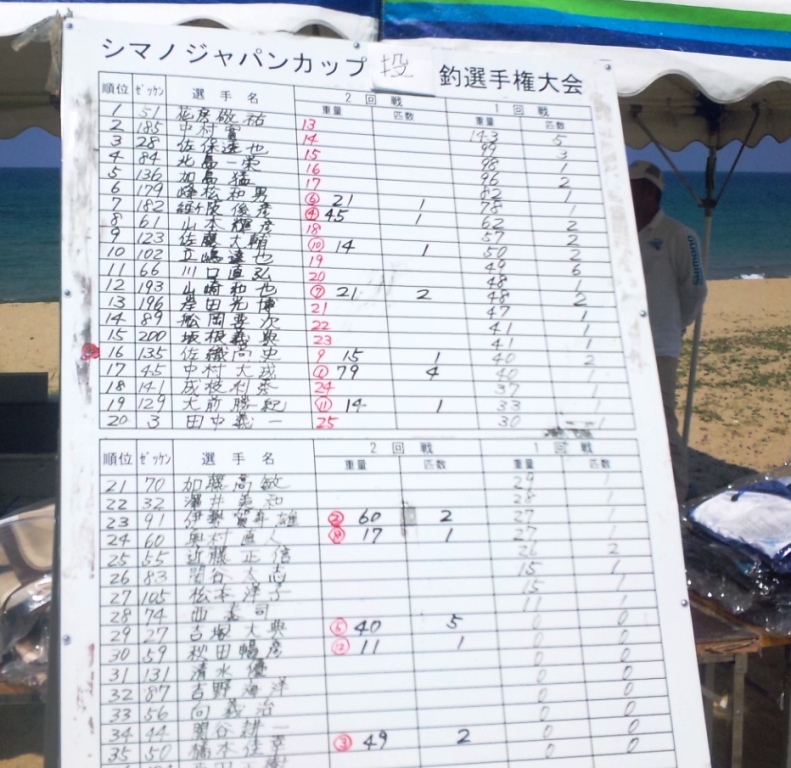 シマノジャパンカップ 投 釣選手権大会
順位 ゼッケン 選手名 2回戦 1回戦
重量 匹数 重量 匹数
1 51 祐 13 143 5
2 185 中村 14 99 3
3 28 佐保達也 15 98 1
4 84 北島一栄 16 96 2
5 136 加島猛 17 82 1
6 179 峰松和男 ⑥ 21 1 75 1
7 182 俊彦 ④ 45 1 62 2
8 61 山本輝彦 18 57 2
9 123 佐藤大輔 ⑩ 14 1 50 2
10 102 立嶋達也 19 49 6
11 66 川口直弘 20 48 1
12 193 山崎和也 ⑦ 21 2 48 2
13 196 岸田光博 21 47 1
14 89 舩岡要次 22 41 1
15 200 坂根義典 23 41 1
16 135 佐織高史 9 15 1 40 2
17 45 中村大成 ① 79 4 40 1
18 141 成枝利幸 24 37 1
19 129 大前勝紀 ⑪ 14 1 33 1
20 3 田中義一 25 30 1
順位 ゼッケン 選手名 2回戦 1回戦
重量 匹数 重量 匹数
21 70 加藤高敏 29 1
22 32 澤井美和 28 1
23 91 伊勢賀寿雄 ② 60 2 27 1
24 60 奥村直人 17 1 27 1
25 55 近藤正信 26 2
26 83 関谷大志 15 1
27 105 松本洋子 15 1
28 74 西喜司 11 1
29 27 吉塚大典 ⑤ 40 5 0 0
30 59 秋田暢彦 ⑫ 11 1 0 0
31 131 清水優 0 0
32 87 吉野海洋 0 0
33 56 向義治 0 0
34 44 関谷耕一 0 0
35 50 橋本佳幸 ③ 49 2 0 0